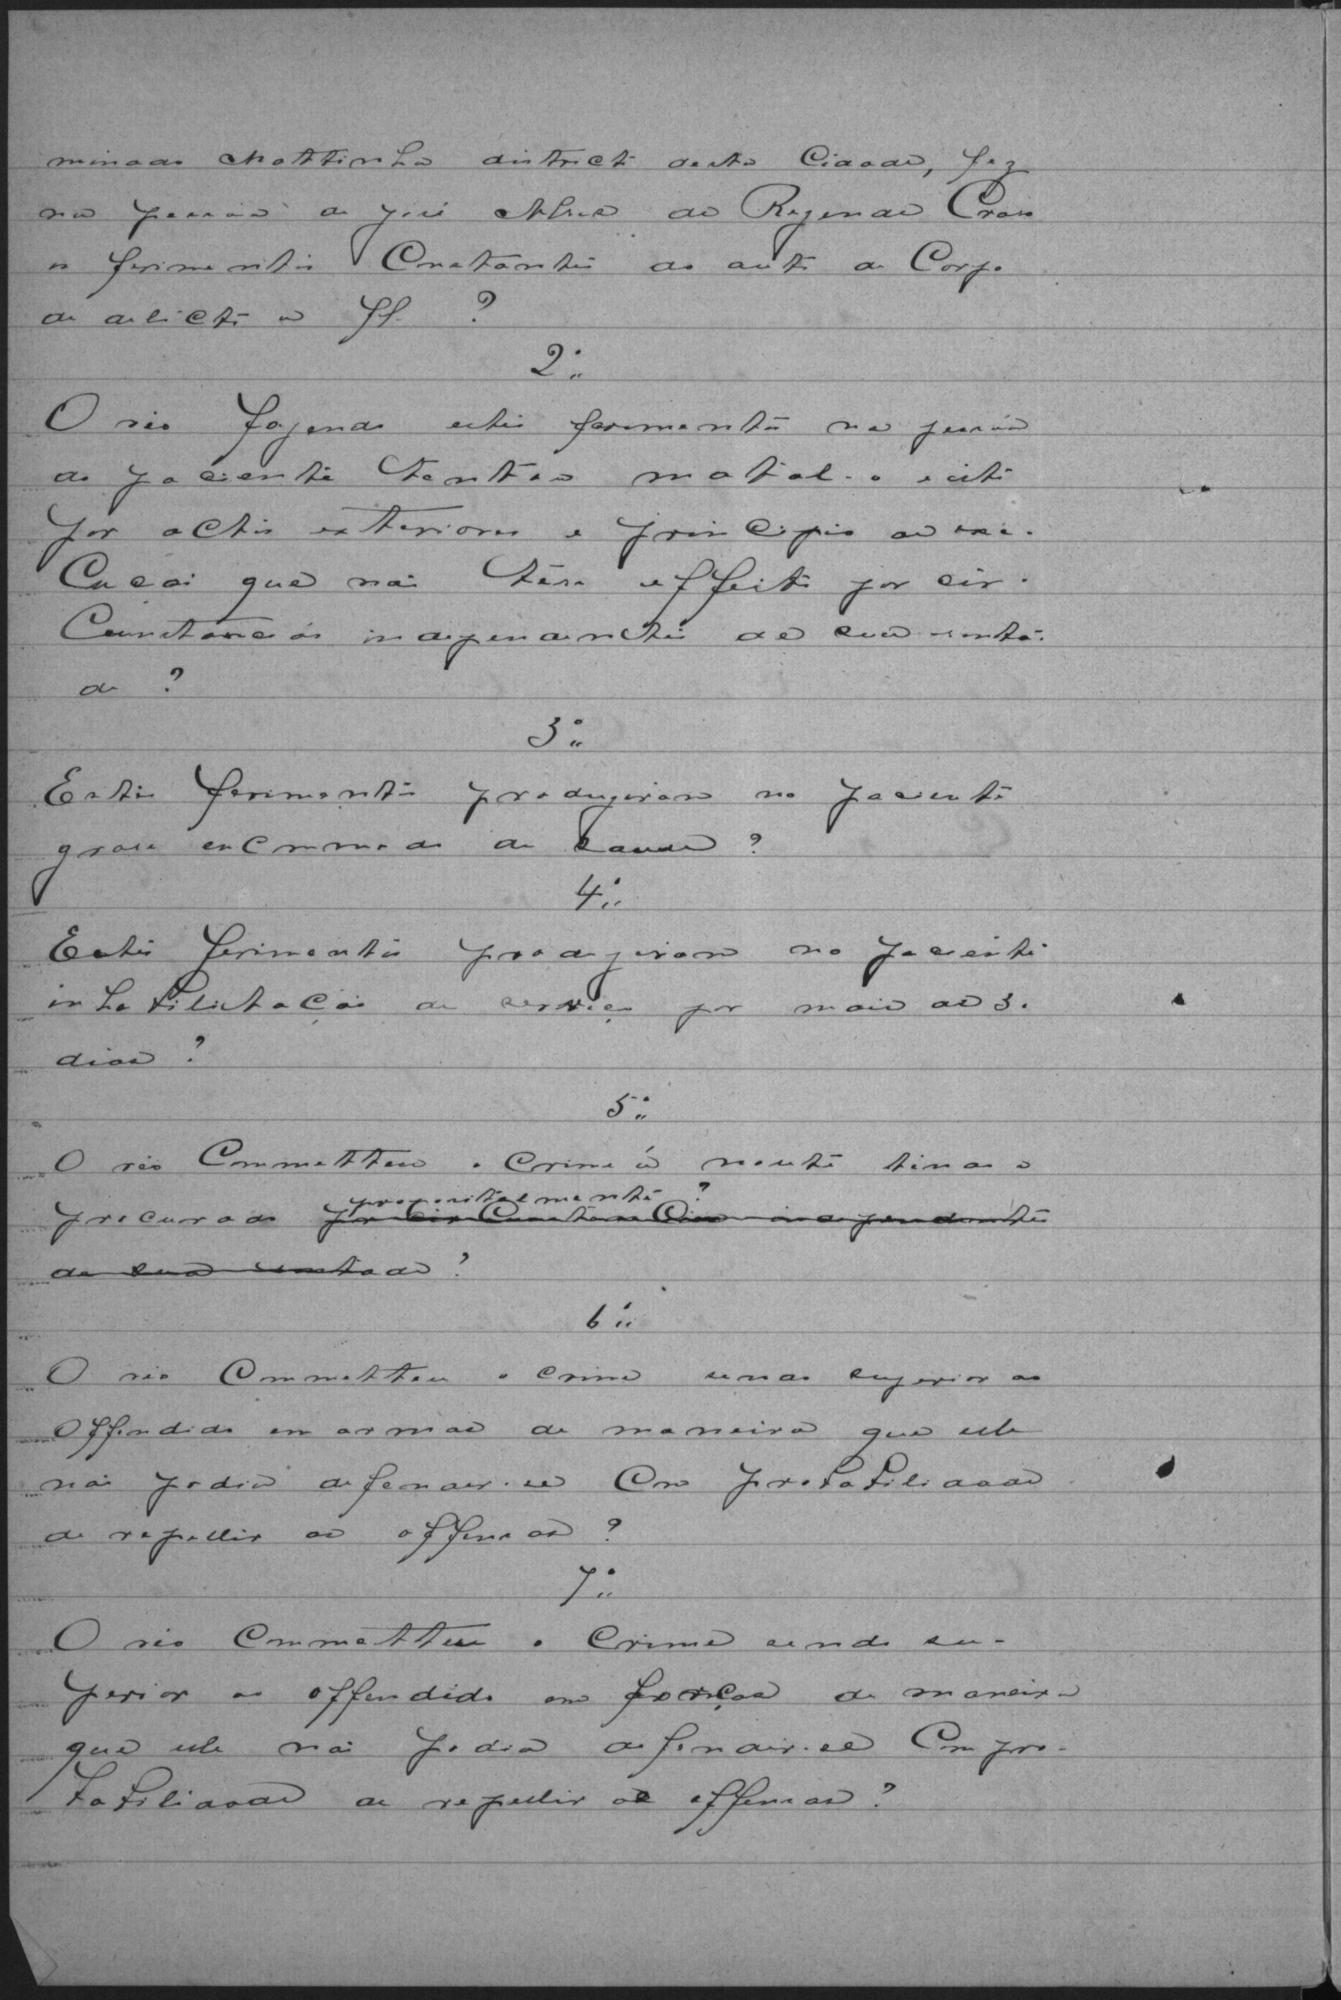 minado Mattinha districto desta Cidade, fez
na pessôa de José Alves de Rezende
os ferimentos Constantes do auto de Corpo
de delicto a ff. ?
2º
O réo fazendo estes ferimentos na pessôa
do paciente tentou matal-o e isto
por actos exteriores e principio de exe-
Cução que não teve effeito por cir-
Cunstancias independentes de sua vonta-
de ?
3º
Estes ferimentos produziram no paciente
grave encommodo de saude ?
4º
Estes ferimentos produziram no paciente
inhabilitação de serviço por mais de 3.
dias ?
5º
O réo Commetteu o Crime á noute tendo a
propositalmente ?
procurado por Cir Cunstancias independentes
de sua vontade ?
6º
O réo Commetteu o crime sendo superior ao
Offendido em armas de maneira que este
não podia defender-se Com probabilidade
de repellir as offensas ?
7º
O réo Commetteu o Crime sendo su-
perior ao offendido em forças de maneira
que este não podia defender-se Com pro-
babilidade de repellir as offensas ?